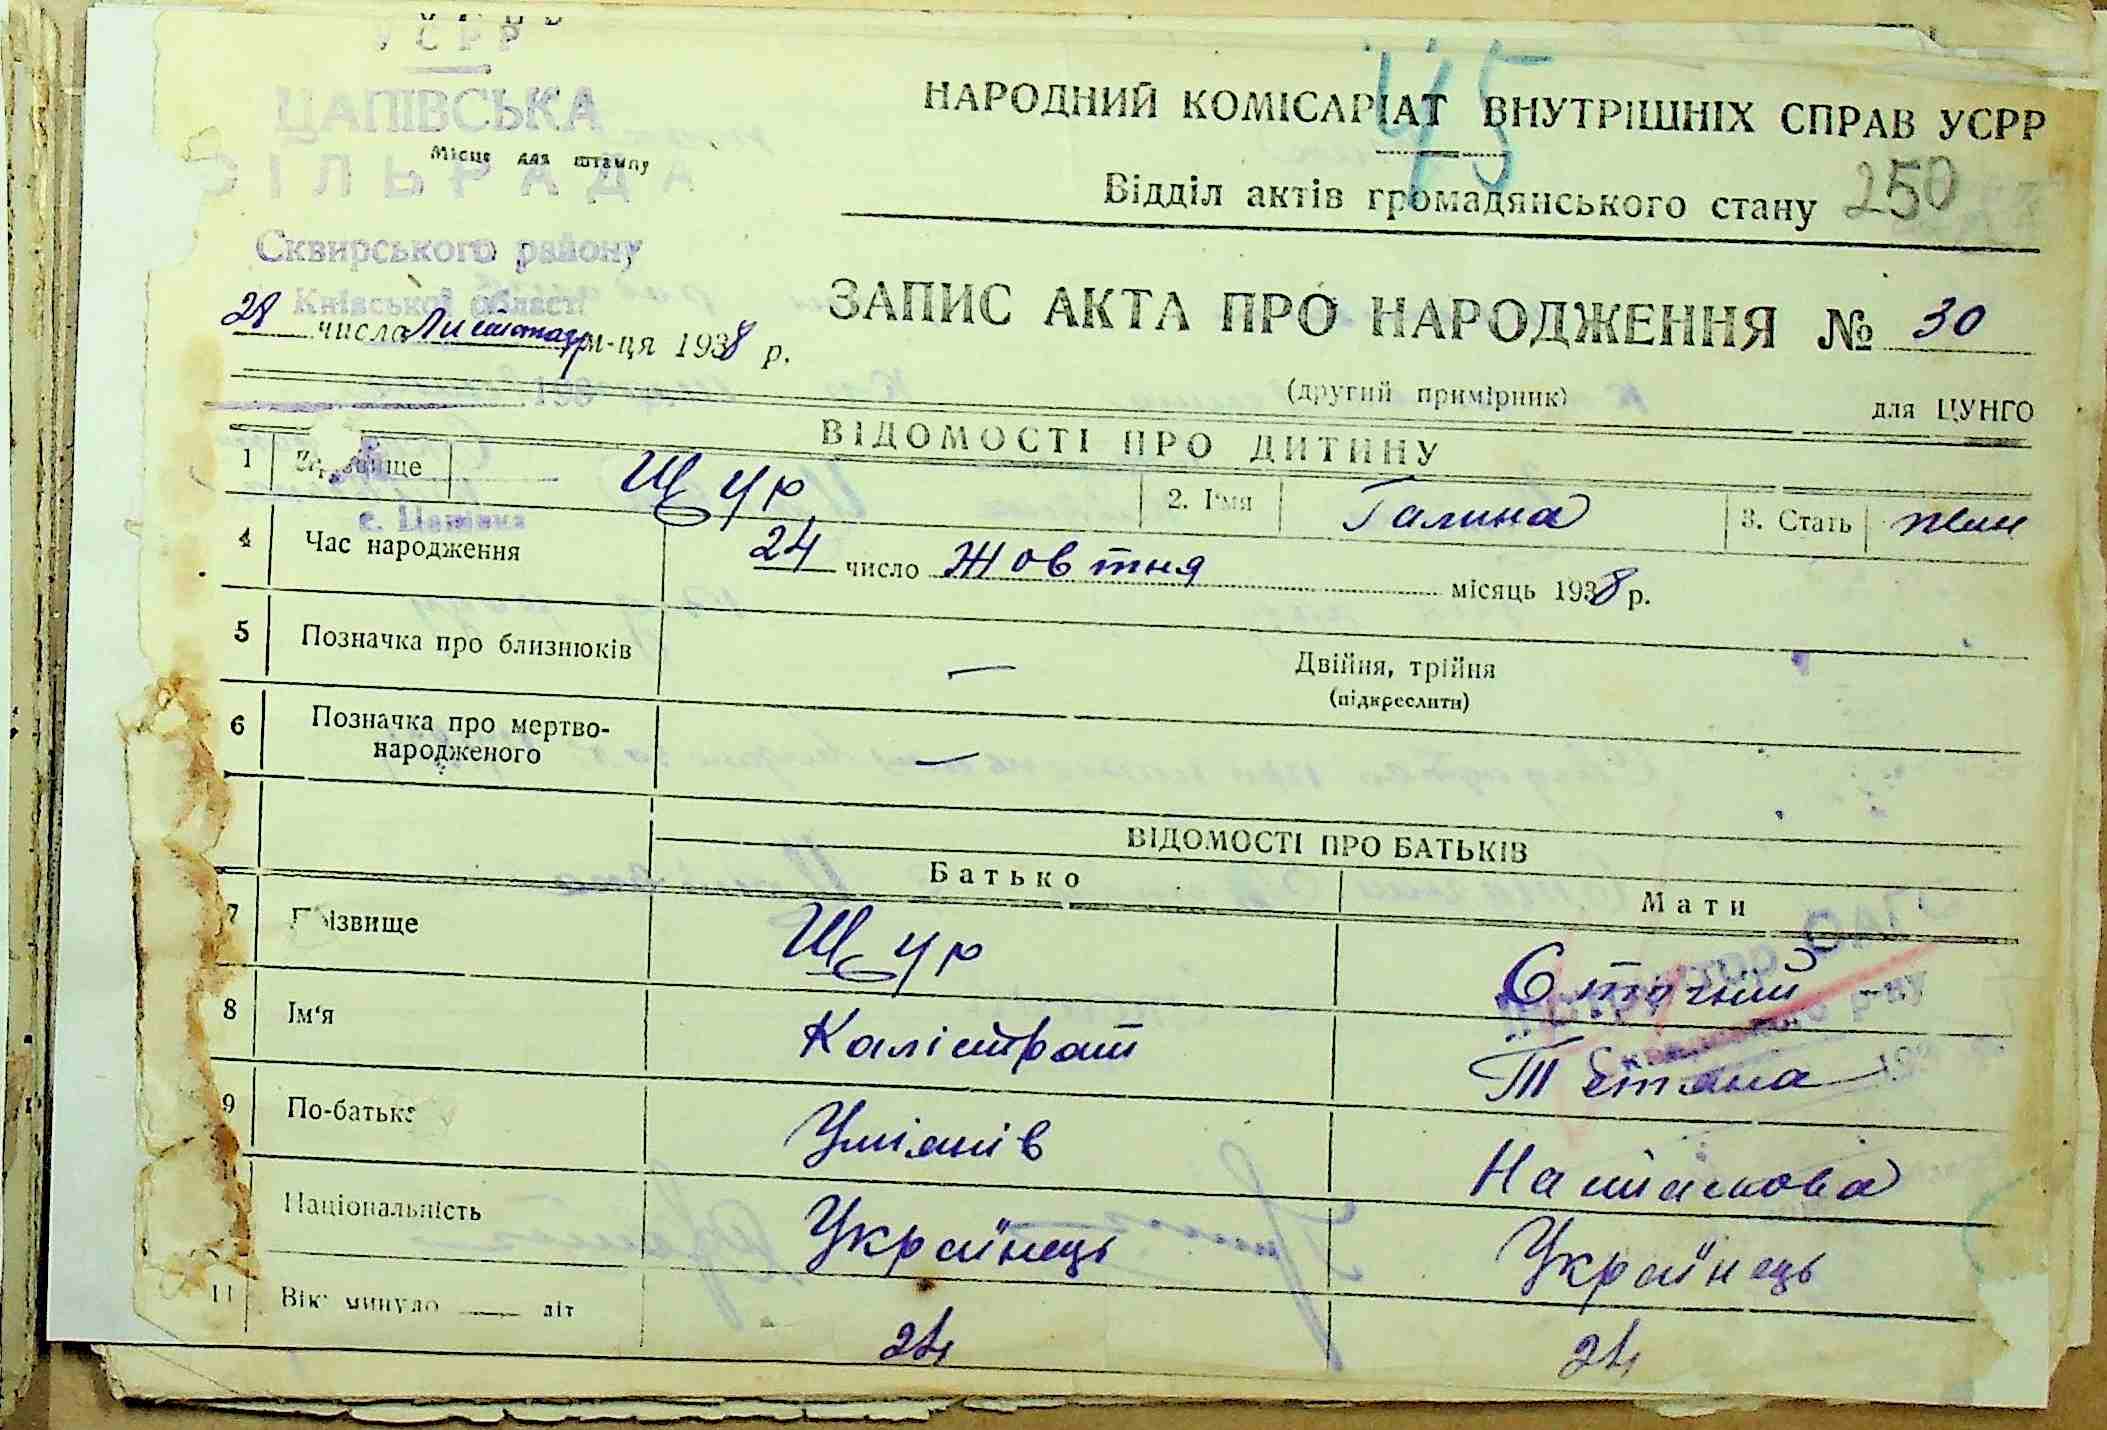 УСРР
ЦАПІВСЬКА
Місце для штампу
СІЛЬРАДА
Сквирського району
Київської області
28 числа Листопад м-ця 1938 р.
45
НАРОДНИЙ КОМІСАРІАТ ВНУТРІШНІХ СПРАВ УСРР
Відділ актів громадянського стану 250
ЗАПИС АКТА ПРО НАРОДЖЕННЯ № 30
(другий примірник)
для ЦУНГО
ВІДОМОСТІ ПРО ДИТИНУ
1 Прізвище Щур 2. Ім'я Галина 3. Стать жін
с. Цапівка
4 Час народження 24 число Жовтня місяць 1938 р.
5 Позначка про близнюків — Двійня, трійня
(підкреслити)
6 Позначка про мертво-
народженого —
ВІДОМОСТІ ПРО БАТЬКІВ
Батько Мати
7 Прізвище Щур
8 Ім'я Калістрат Тетяна
9 По-батькові
Національність Українець Українець
11 Вік: минуло літ 24 24